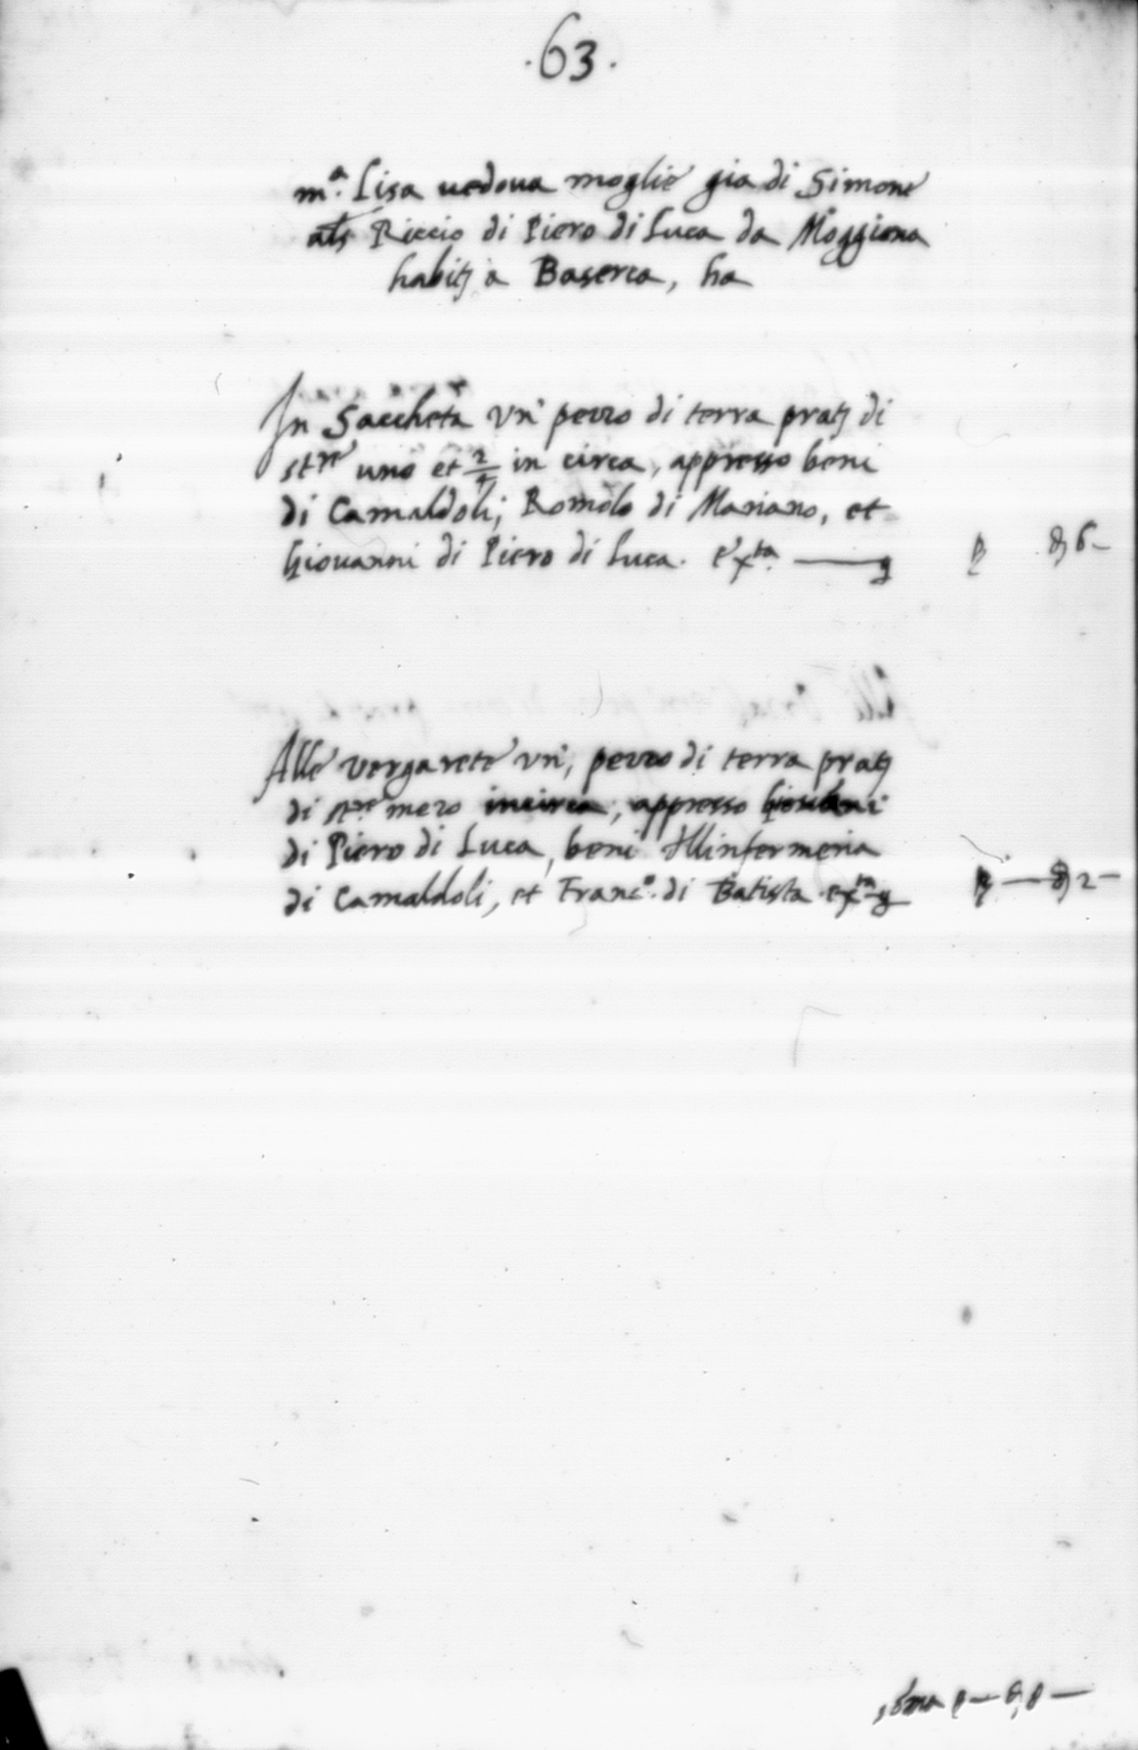 .63.
m.ª Lisa uedoua moglie gia di Simone
als Riccio di Piero di Luca da Moggiona
habitz a Baserca, ha
In Saccheta vn' pezzo di terra pratz di
st.re uno et 2/4 in circa, appresso beni
di Camaldoli; Romolo di Mariano, et
Giouanni di Piero di Luca. ex.ta
6 –
Alle vergarete vn', pezzo di terra pratz
di st.re mezo incirca, appresso Giouanni
di Piero di Luca, beni dll'infermeria
di Camaldoli, et Franc.º di Batista ex.ta
2 –
soma